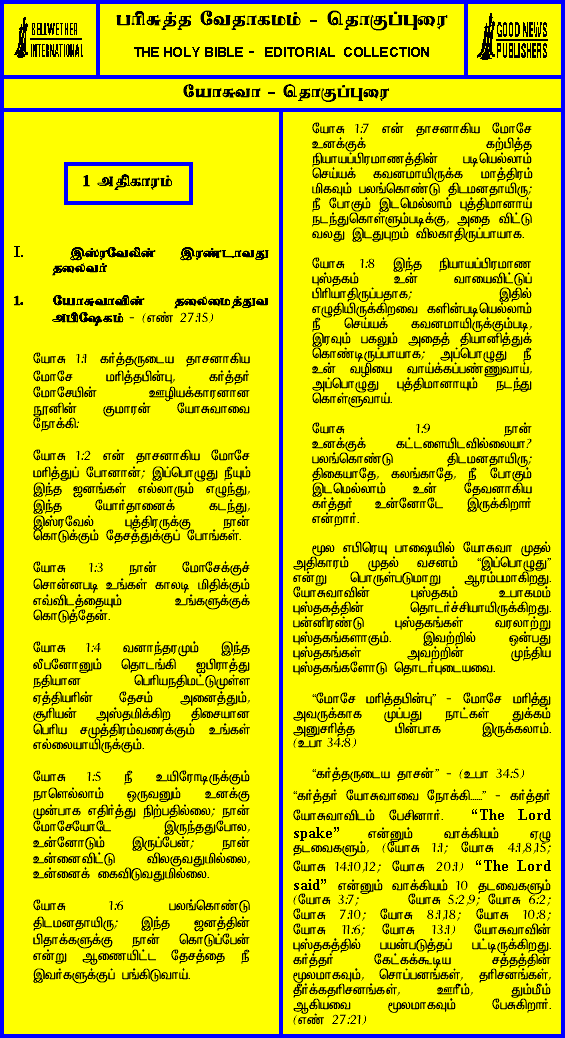 BELLWETHER
INTERNATIONAL
பரிசுத்த வேதாகமம் - தொகுப்புரை
THE HOLY BIBLE - EDITORIAL COLLECTION
GOOD NEWS
PUBLISHERS
யோசுவா - தொகுப்புரை
1 அதிகாரம்
I. இஸ்ரவேலின் இரண்டாவது
தலைவர்
1. யோசுவாவின் தலைமைத்துவ
அபிஷேகம் - (எண் 27:15)
யோசு 1:1 கர்த்தருடைய தாசனாகிய
மோசே மரித்தபின்பு, கர்த்தர்
மோசேயின் ஊழியக்காரனான
நூனின் குமாரன் யோசுவாவை
நோக்கி:
யோசு 1:2 என் தாசனாகிய மோசே
மரித்துப் போனான்; இப்பொழுது நீயும்
இந்த ஜனங்கள் எல்லாரும் எழுந்து,
இந்த யோர்தானைக் கடந்து,
இஸ்ரவேல் புத்திரருக்கு நான்
கொடுக்கும் தேசத்துக்குப் போங்கள்.
யோசு 1:3 நான் மோசேக்குச்
சொன்னபடி உங்கள் காலடி மிதிக்கும்
எவ்விடத்தையும் உங்களுக்குக்
கொடுத்தேன்.
யோசு 1:4 வனாந்தரமும் இந்த
லீபனோனும் தொடங்கி ஐபிராத்து
நதியான பெரியநதிமட்டுமுள்ள
ஏத்தியரின் தேசம் அனைத்தும்,
சூரியன் அஸ்தமிக்கிற திசையான
பெரிய சமுத்திரம்வரைக்கும் உங்கள்
எல்லையாயிருக்கும்.
யோசு 1:5 நீ உயிரோடிருக்கும்
நாளெல்லாம் ஒருவனும் உனக்கு
முன்பாக எதிர்த்து நிற்பதில்லை; நான்
மோசேயோடே இருந்ததுபோல,
உன்னோடும் இருப்பேன்; நான்
உன்னைவிட்டு விலகுவதுமில்லை,
உன்னைக் கைவிடுவதுமில்லை.
யோசு 1:6 பலங்கொண்டு
திடமனதாயிரு; இந்த ஜனத்தின்
பிதாக்களுக்கு நான் கொடுப்பேன்
என்று ஆணையிட்ட தேசத்தை நீ
இவர்களுக்குப் பங்கிடுவாய்.
யோசு 1:7 என் தாசனாகிய மோசே
உனக்குக் கற்பித்த
நியாயப்பிரமாணத்தின் படியெல்லாம்
செய்யக் கவனமாயிருக்க மாத்திரம்
மிகவும் பலங்கொண்டு திடமனதாயிரு;
நீ போகும் இடமெல்லாம் புத்திமானாய்
நடந்துகொள்ளும்படிக்கு, அதை விட்டு
வலது இடதுபுறம் விலகாதிருப்பாயாக.
யோசு 1:8 இந்த நியாயப்பிரமாண
புஸ்தகம் உன் வாயைவிட்டுப்
பிரியாதிருப்பதாக; இதில்
எழுதியிருக்கிறவை களின்படியெல்லாம்
நீ செய்யக் கவனமாயிருக்கும்படி,
இரவும் பகலும் அதைத் தியானித்துக்
கொண்டிருப்பாயாக; அப்பொழுது நீ
உன் வழியை வாய்க்கப்பண்ணுவாய்,
அப்பொழுது புத்திமானாயும் நடந்து
கொள்ளுவாய்.
யோசு 1:9 நான்
உனக்குக் கட்டளையிடவில்லையா?
பலங்கொண்டு திடமனதாயிரு;
திகையாதே, கலங்காதே, நீ போகும்
இடமெல்லாம் உன் தேவனாகிய
கர்த்தர் உன்னோடே இருக்கிறார்
என்றார்.
மூல எபிரெயு பாஷையில் யோசுவா முதல்
அதிகாரம் முதல் வசனம் "இப்பொழுது"
என்று பொருள்படுமாறு ஆரம்பமாகிறது.
யோசுவாவின் புஸ்தகம் உபாகமம்
புஸ்தகத்தின் தொடர்ச்சியாயிருக்கிறது.
பன்னிரண்டு புஸ்தகங்கள் வரலாற்று
புஸ்தகங்களாகும். இவற்றில் ஒன்பது
புஸ்தகங்கள் அவற்றின் முந்திய
புஸ்தகங்களோடு தொடர்புடையவை.
"மோசே மரித்தபின்பு" - மோசே மரித்து
அவருக்காக முப்பது நாட்கள் துக்கம்
அனுசரித்த பின்பாக இருக்கலாம்.
(உபா 34:8)
"கர்த்தருடைய தாசன்" - (உபா 34:5)
"கர்த்தர் யோசுவாவை நோக்கி....." - கர்த்தர்
யோசுவாவிடம் பேசினார். "The Lord
spake" என்னும் வாக்கியம் ஏழு
தடவைகளும், (யோசு 1:1; யோசு 4:1,8,15;
யோசு 14:10,12; யோசு 20:1) "The Lord
said" என்னும் வாக்கியம் 10 தடவைகளும்
(யோசு 3:7; யோசு 5:2,9; யோசு 6:2;
யோசு 7:10; யோசு 8:1,18; யோசு 10:8;
யோசு 11:6; யோசு 13:1) யோசுவாவின்
புஸ்தகத்தில் பயன்படுத்தப் பட்டிருக்கிறது.
கர்த்தர் கேட்கக்கூடிய சத்தத்தின்
மூலமாகவும், சொப்பனங்கள், தரிசனங்கள்,
தீர்க்கதரிசனங்கள், ஊரீம், தும்மீம்
ஆகியவை மூலமாகவும் பேசுகிறார்.
(எண் 27:21)